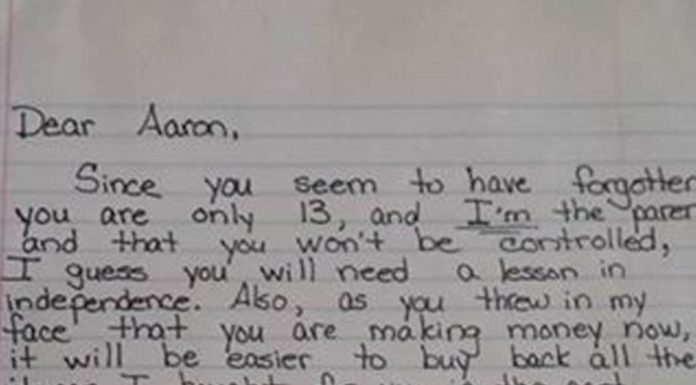 Dear Aaron,
Since you seem to have forgotten
you are only 13, and I'm the paren
and that you won't be controlled,
I guess you will need a lesson in
independence. Also, as you threw in my
face that you are making money now,
it will be easier to buy back all the